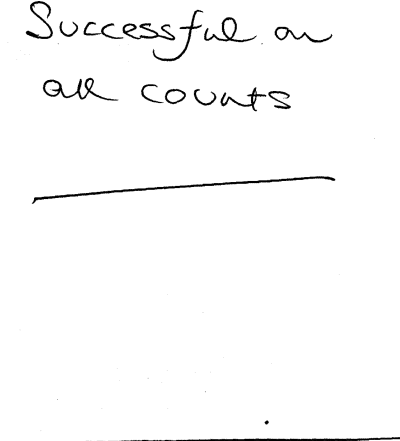 Successful on
all counts